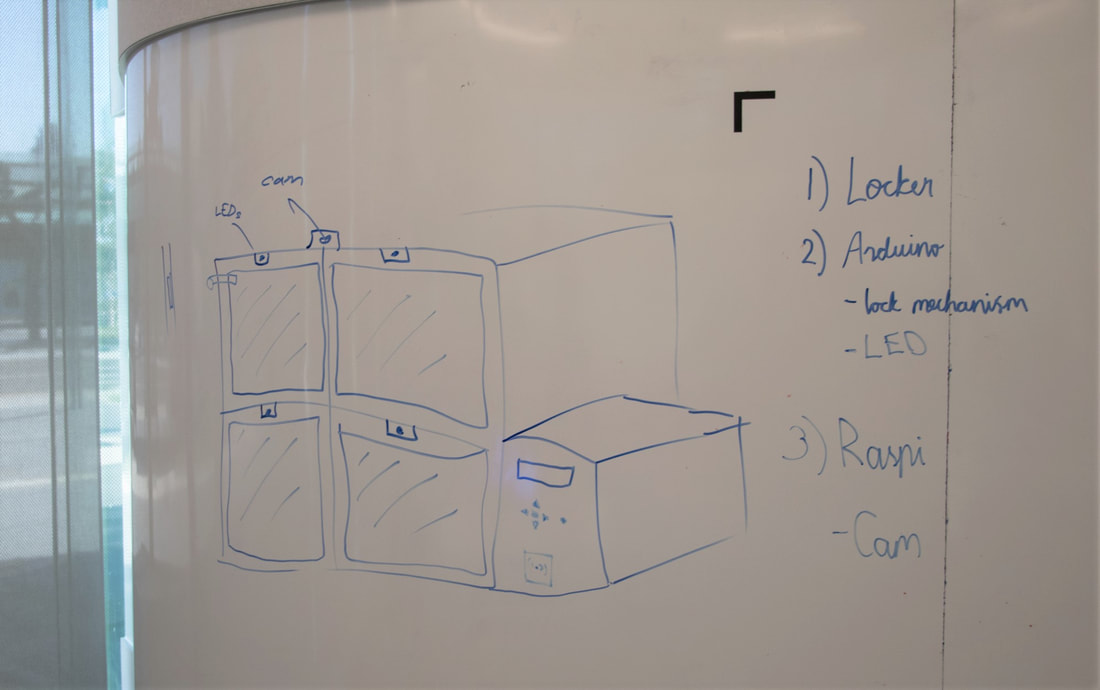 cam
LEDs
1) Locker
2) Arduino
- lock mechanism
- LED
3) Raspi
- Cam